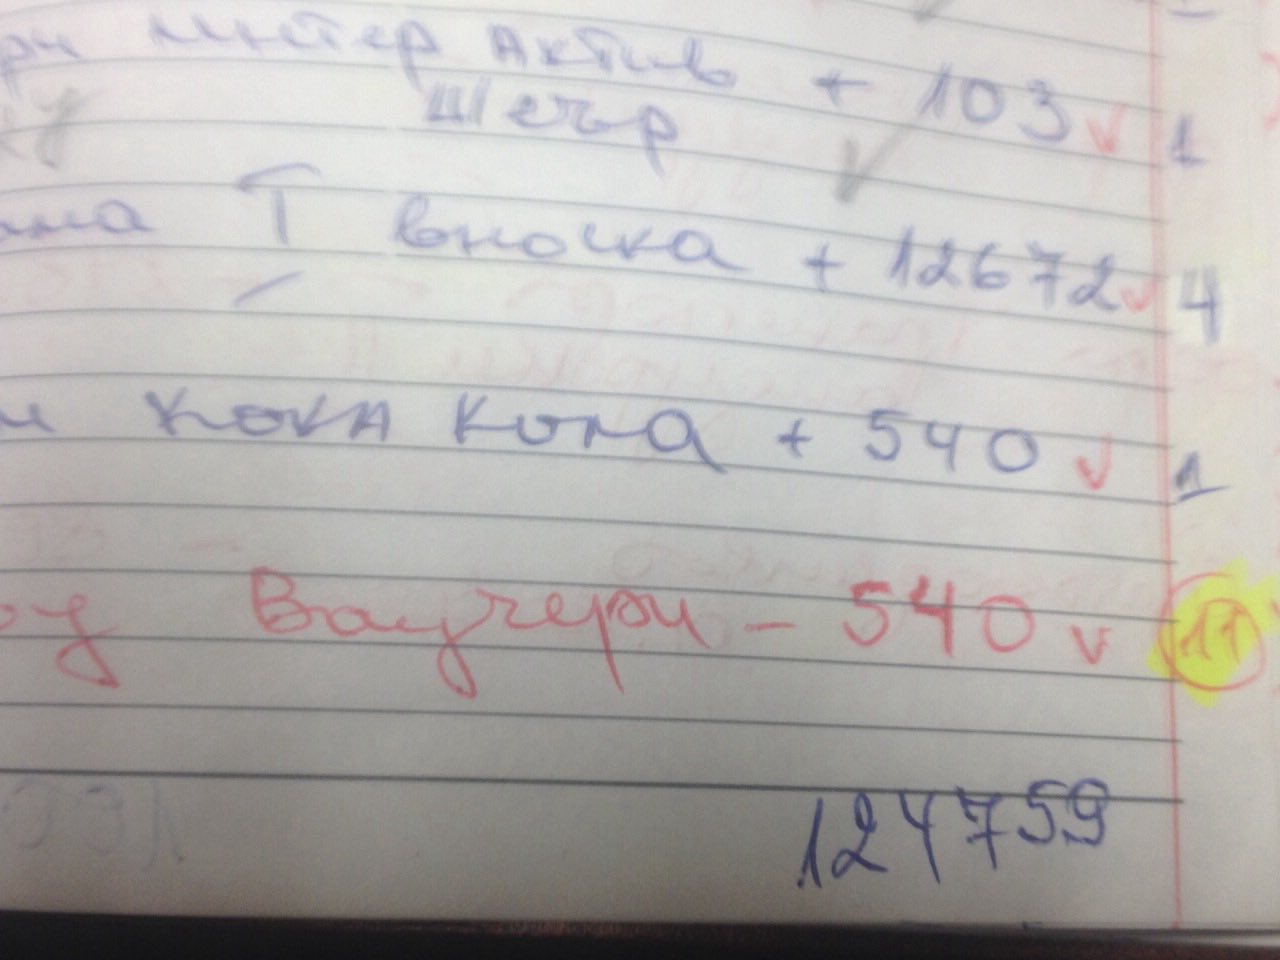 интер Актив + 103 1
Шеър
Т вноска + 12672 4
кока кола + 540 1
Ваучери - 540 11
124759